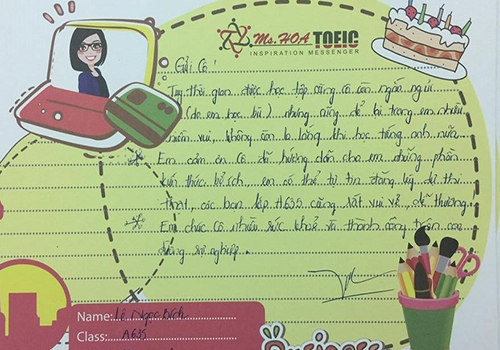 Ms.HOA TOEIC
INSPIRATION MESSENGER
Gửi Cô!
Tuy thời gian được học tập cùng cô còn ngắn ngủi
(do em học bù) nhưng cũng để lại trong em nhiều
niềm vui, không còn lo lắng khi học tiếng anh nữa.
Em cảm ơn cô đã hướng dẫn cho em những phần
kiến thức bổ ích, em có thể tự tin đăng ký đi thi
thật, các bạn lớp A635 cũng rất vui vẻ, dễ thương.
Em chúc cô nhiều sức khoẻ và thành công trên con
đường sự nghiệp.
Name: Lê Ngọc Bích
Class: A635